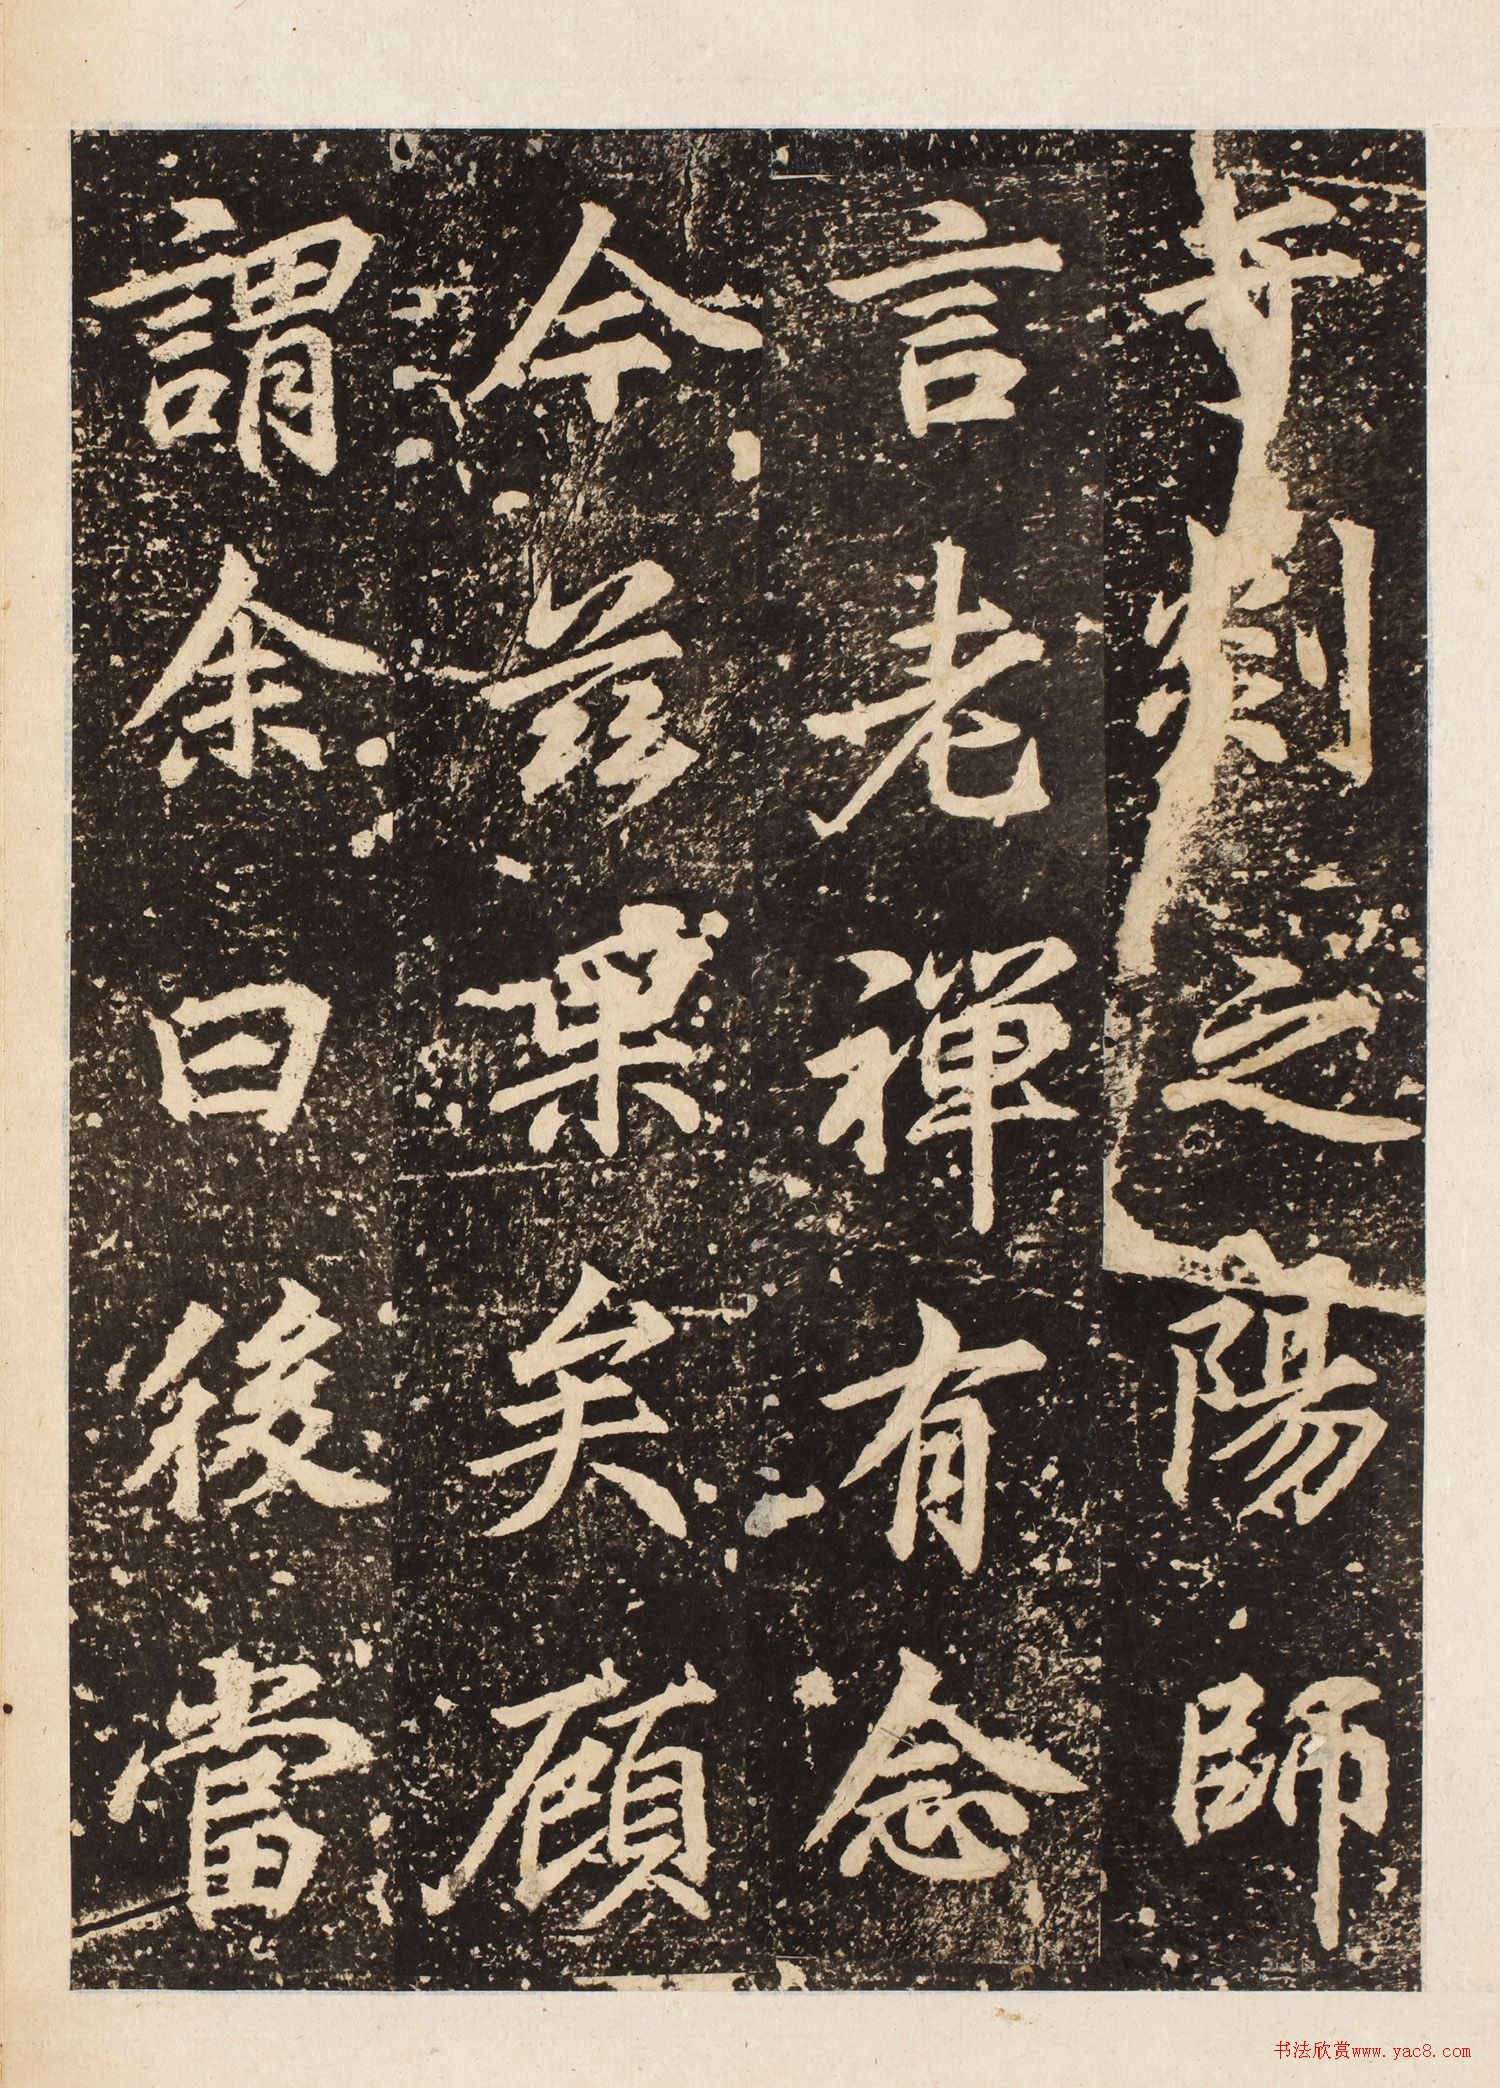 刹之陽師
言老禪有念
今兹果矣顧
謂余曰後當
书法欣赏www.yac8.com